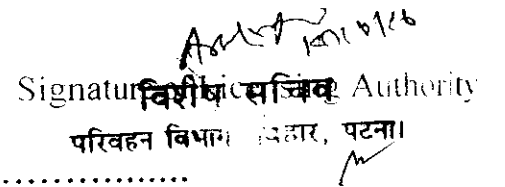 Signature Licensing Authority
विशेष सचिव
परिवहन विभाग बिहार, पटना।
................